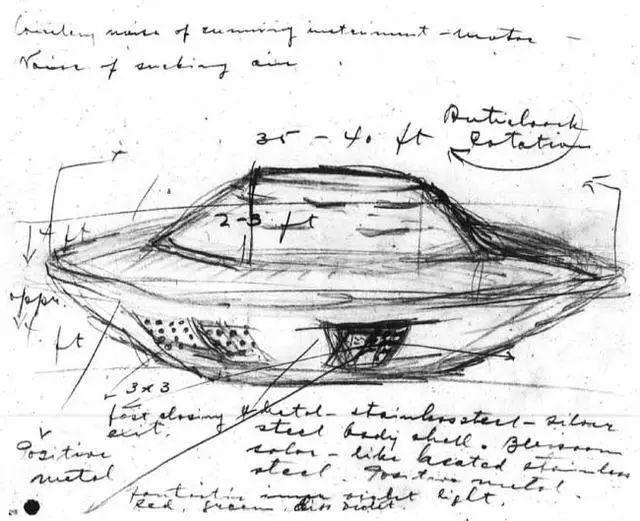 noise of running instrument - motor -
Noise of sucking air
Anticlock
Rotation
35 - 40 ft
2-3 ft
4 ft
appr.
4 ft
3x3
fast closing
exit.
Metal - stainless steel - silver
steel body shell.
color - like heated stainless
steel. Positive metal.
Positive
metal
Fantastic inner violet light.
Red, green, violet.